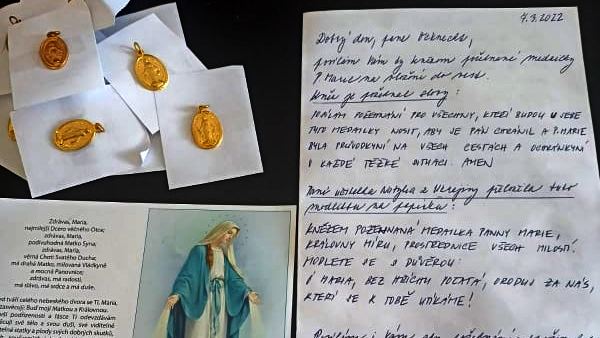 7.3.2022
Dobrý den, pane
posílám Vám knězem požehnané medailky
P. Marie na do
Kněz je požehnal slovy:
POŽEHNÁNÍ PRO VŠECHNY, KTEŘÍ BUDOU U SEBE
TYTO MEDAILKY NOSIT, ABY JE PÁN CHRÁNIL A P. MARIE
BYLA PRŮVODKYNÍ NA VŠECH CESTÁCH A OCHRÁNKYNÍ
V KAŽDÉ TĚŽKÉ SITUACI. AMEN
Paní učitelka z přiložila tuto
modlitbu na papírku:
KNĚZEM POŽEHNANÁ MEDAILKA PANNY MARIE,
KRÁLOVNY MÍRU, PROSTŘEDNICE VŠECH MILOSTÍ.
MODLETE SE S DŮVĚROU:
Ó MARIA, BEZ HŘÍCHU POČATÁ, ORODUJ ZA NÁS,
KTEŘÍ SE K TOBĚ UTÍKÁME!
Zdrávas, Maria,
nejmilejší Dcero věčného Otce;
zdrávas, Maria,
podivuhodná Matko Syna;
zdrávas, Maria,
věrná Choti Svatého Ducha;
má drahá Matko, milovaná Vládkyně
a mocná Panovnice;
zdrávas, má radosti,
má slávo, mé srdce a má duše.
tváří celého nebeského dvora se Ti, Maria,
Buď mojí Matkou a Královnou.
podřízenosti a lásce Ti odevzdávám
své tělo a svou duši, své viditelné
statky a plody svých dobrých skutků,